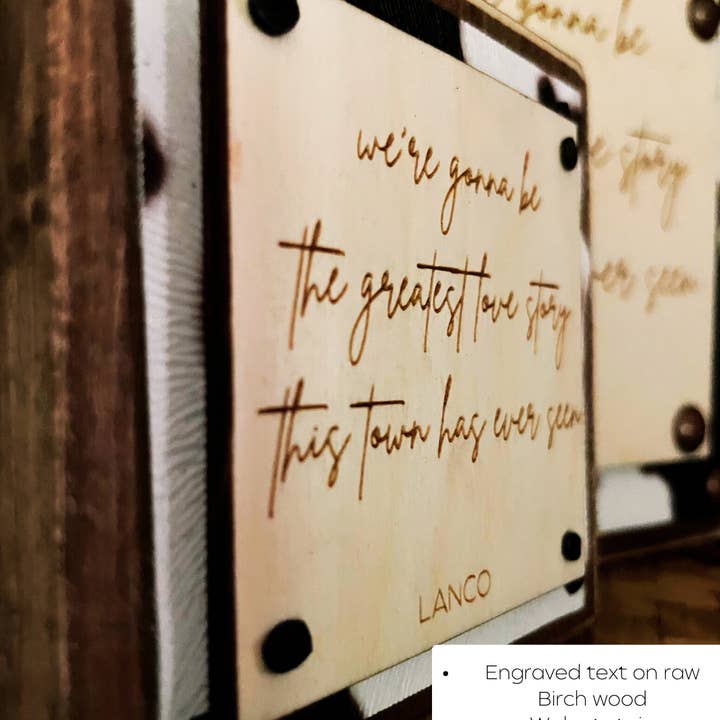 we're gonna be
the greatest love story
this town has ever seen
LANCO
gonna be
story
ever seen
Engraved text on raw
Birch wood